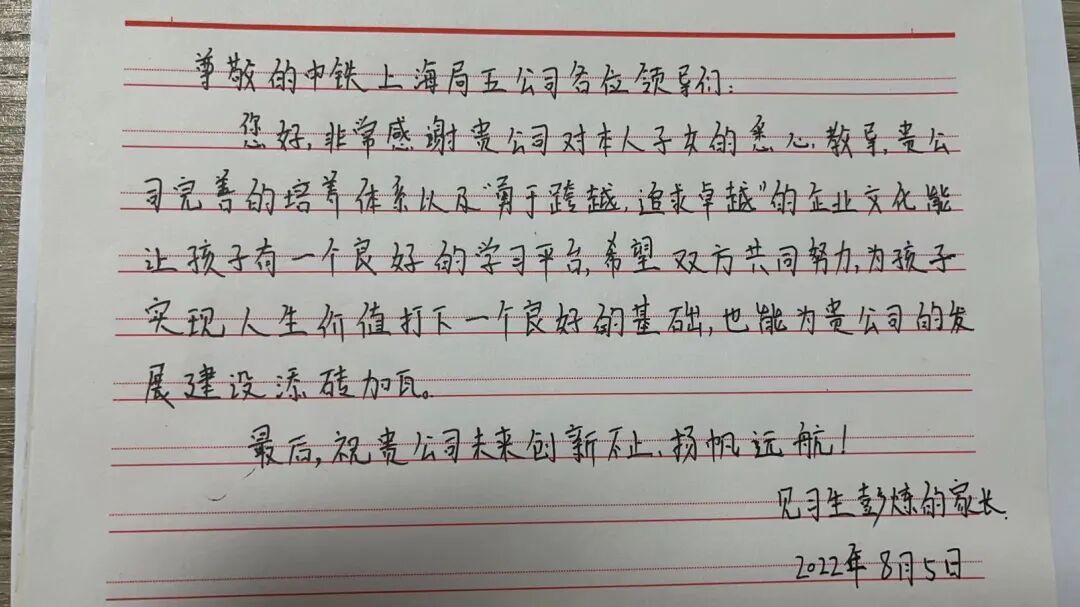 尊敬的中铁上海局五公司各位领导们：
您好，非常感谢贵公司对本人子女的悉心教导，贵公
司完善的培养体系以及“勇于跨越，追求卓越”的企业文化能
让孩子有一个良好的学习平台，希望双方共同努力，为孩子
实现人生价值打下一个良好的基础，也能为贵公司的发
展建设添砖加瓦。
最后，祝贵公司未来创新不止、扬帆远航！
见习生彭炼的家长
2022年8月5日